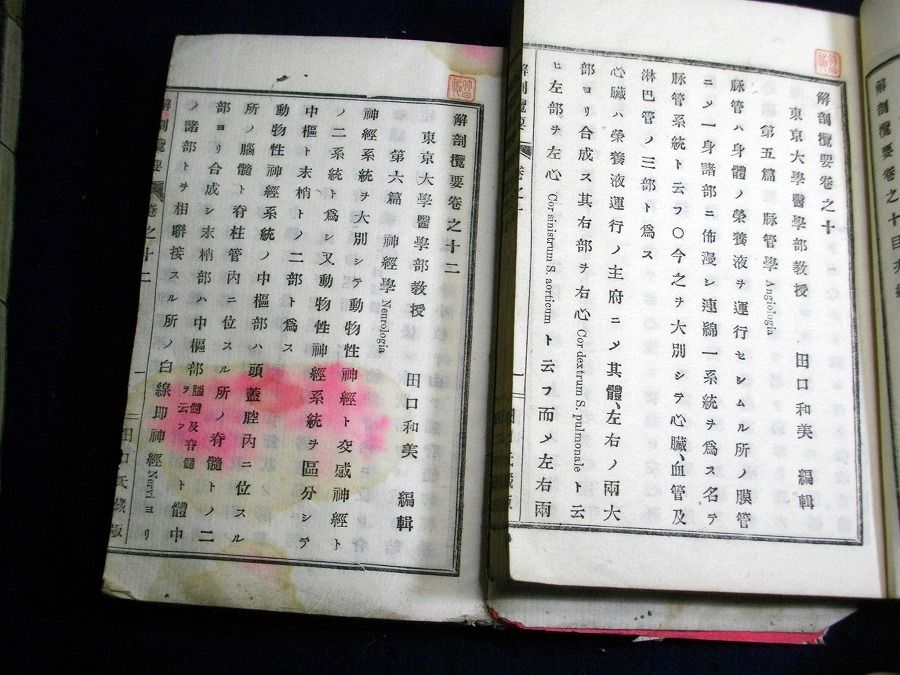 解剖攬要卷之十
東京大學醫學部教授 田口和美 編輯
第五篇 脉管學 Angiologia
脉管ハ身體ノ榮養液ヲ運行セシムル所ノ膜管
ニメ一身諸部ニ佈漫シ連綿一系統ヲ爲ス名テ
脉管系統ト云フ〇今之ヲ大別シテ心臟、血管及
淋巴管ノ三部ト爲ス
心臟ハ榮養液運行ノ主府ニメ其體、左右ノ兩大
部ヨリ合成ス其右部ヲ右心 Cor dextrum S. pulmonale ト云
ヒ左部ヲ左心 Cor sinistrum S. aorticum ト云フ而メ左右兩
解剖攬要 卷之十
解剖攬要卷之十二
東京大學醫學部教授 田口和美 編輯
第六篇 神經學 Neurologia
神經系統ヲ大別シテ動物性神經ト交感神經ト
ノ二系統ト爲シ又動物性神經系統ヲ區分シテ
中樞ト末梢トノ二部ト爲ス
動物性神經系統ノ中樞部ハ頭蓋腔内ニ位スル
所ノ腦髓ト脊柱管内ニ位スル所ノ脊髓トノ二
部ヨリ合成シ末梢部ハ中樞部 腦髓及脊髓ヲ云フ ト體中
ノ諸部トヲ相聯接スル所ノ白線即神經 Nervi ヨリ
解剖攬要 卷之十二 一 田口氏藏版
解剖攬要卷之十目次